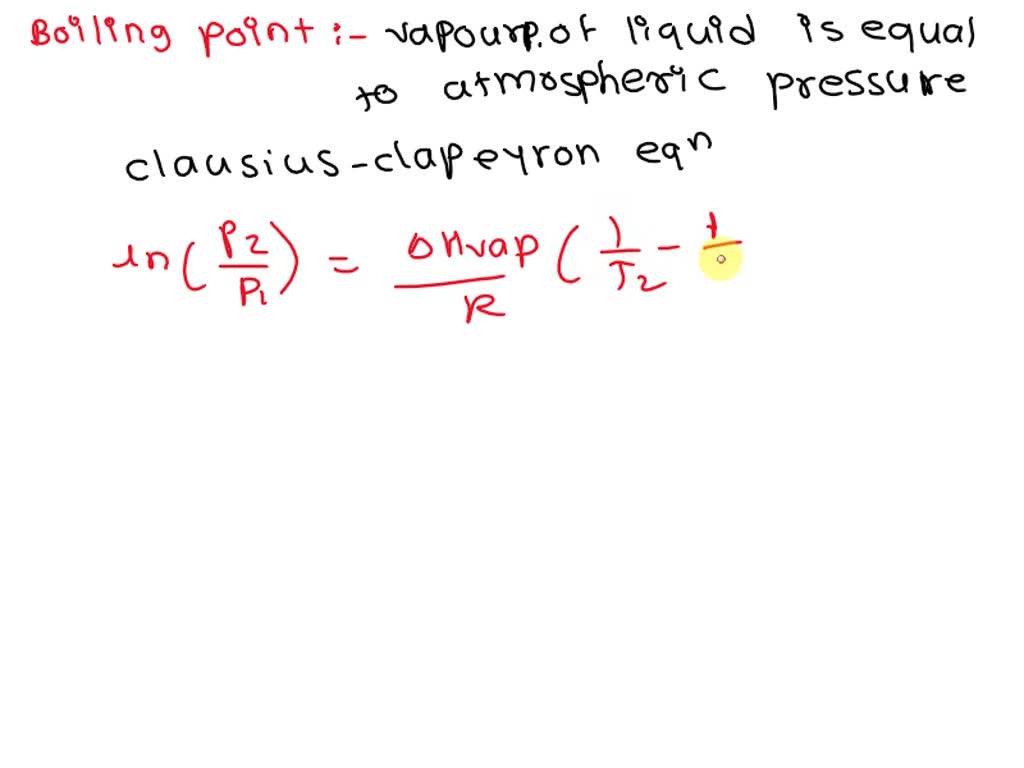 Boiling point :- vapourp. of liquid is equal
to atmospheric pressure
clausius-clapeyron eqn
ln(P2/P1) = ΔHvap/R (1/T2 - 1/